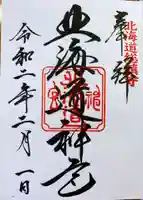 北海道総鎮守
奉拝
北海道神宮
令和二年二月一日